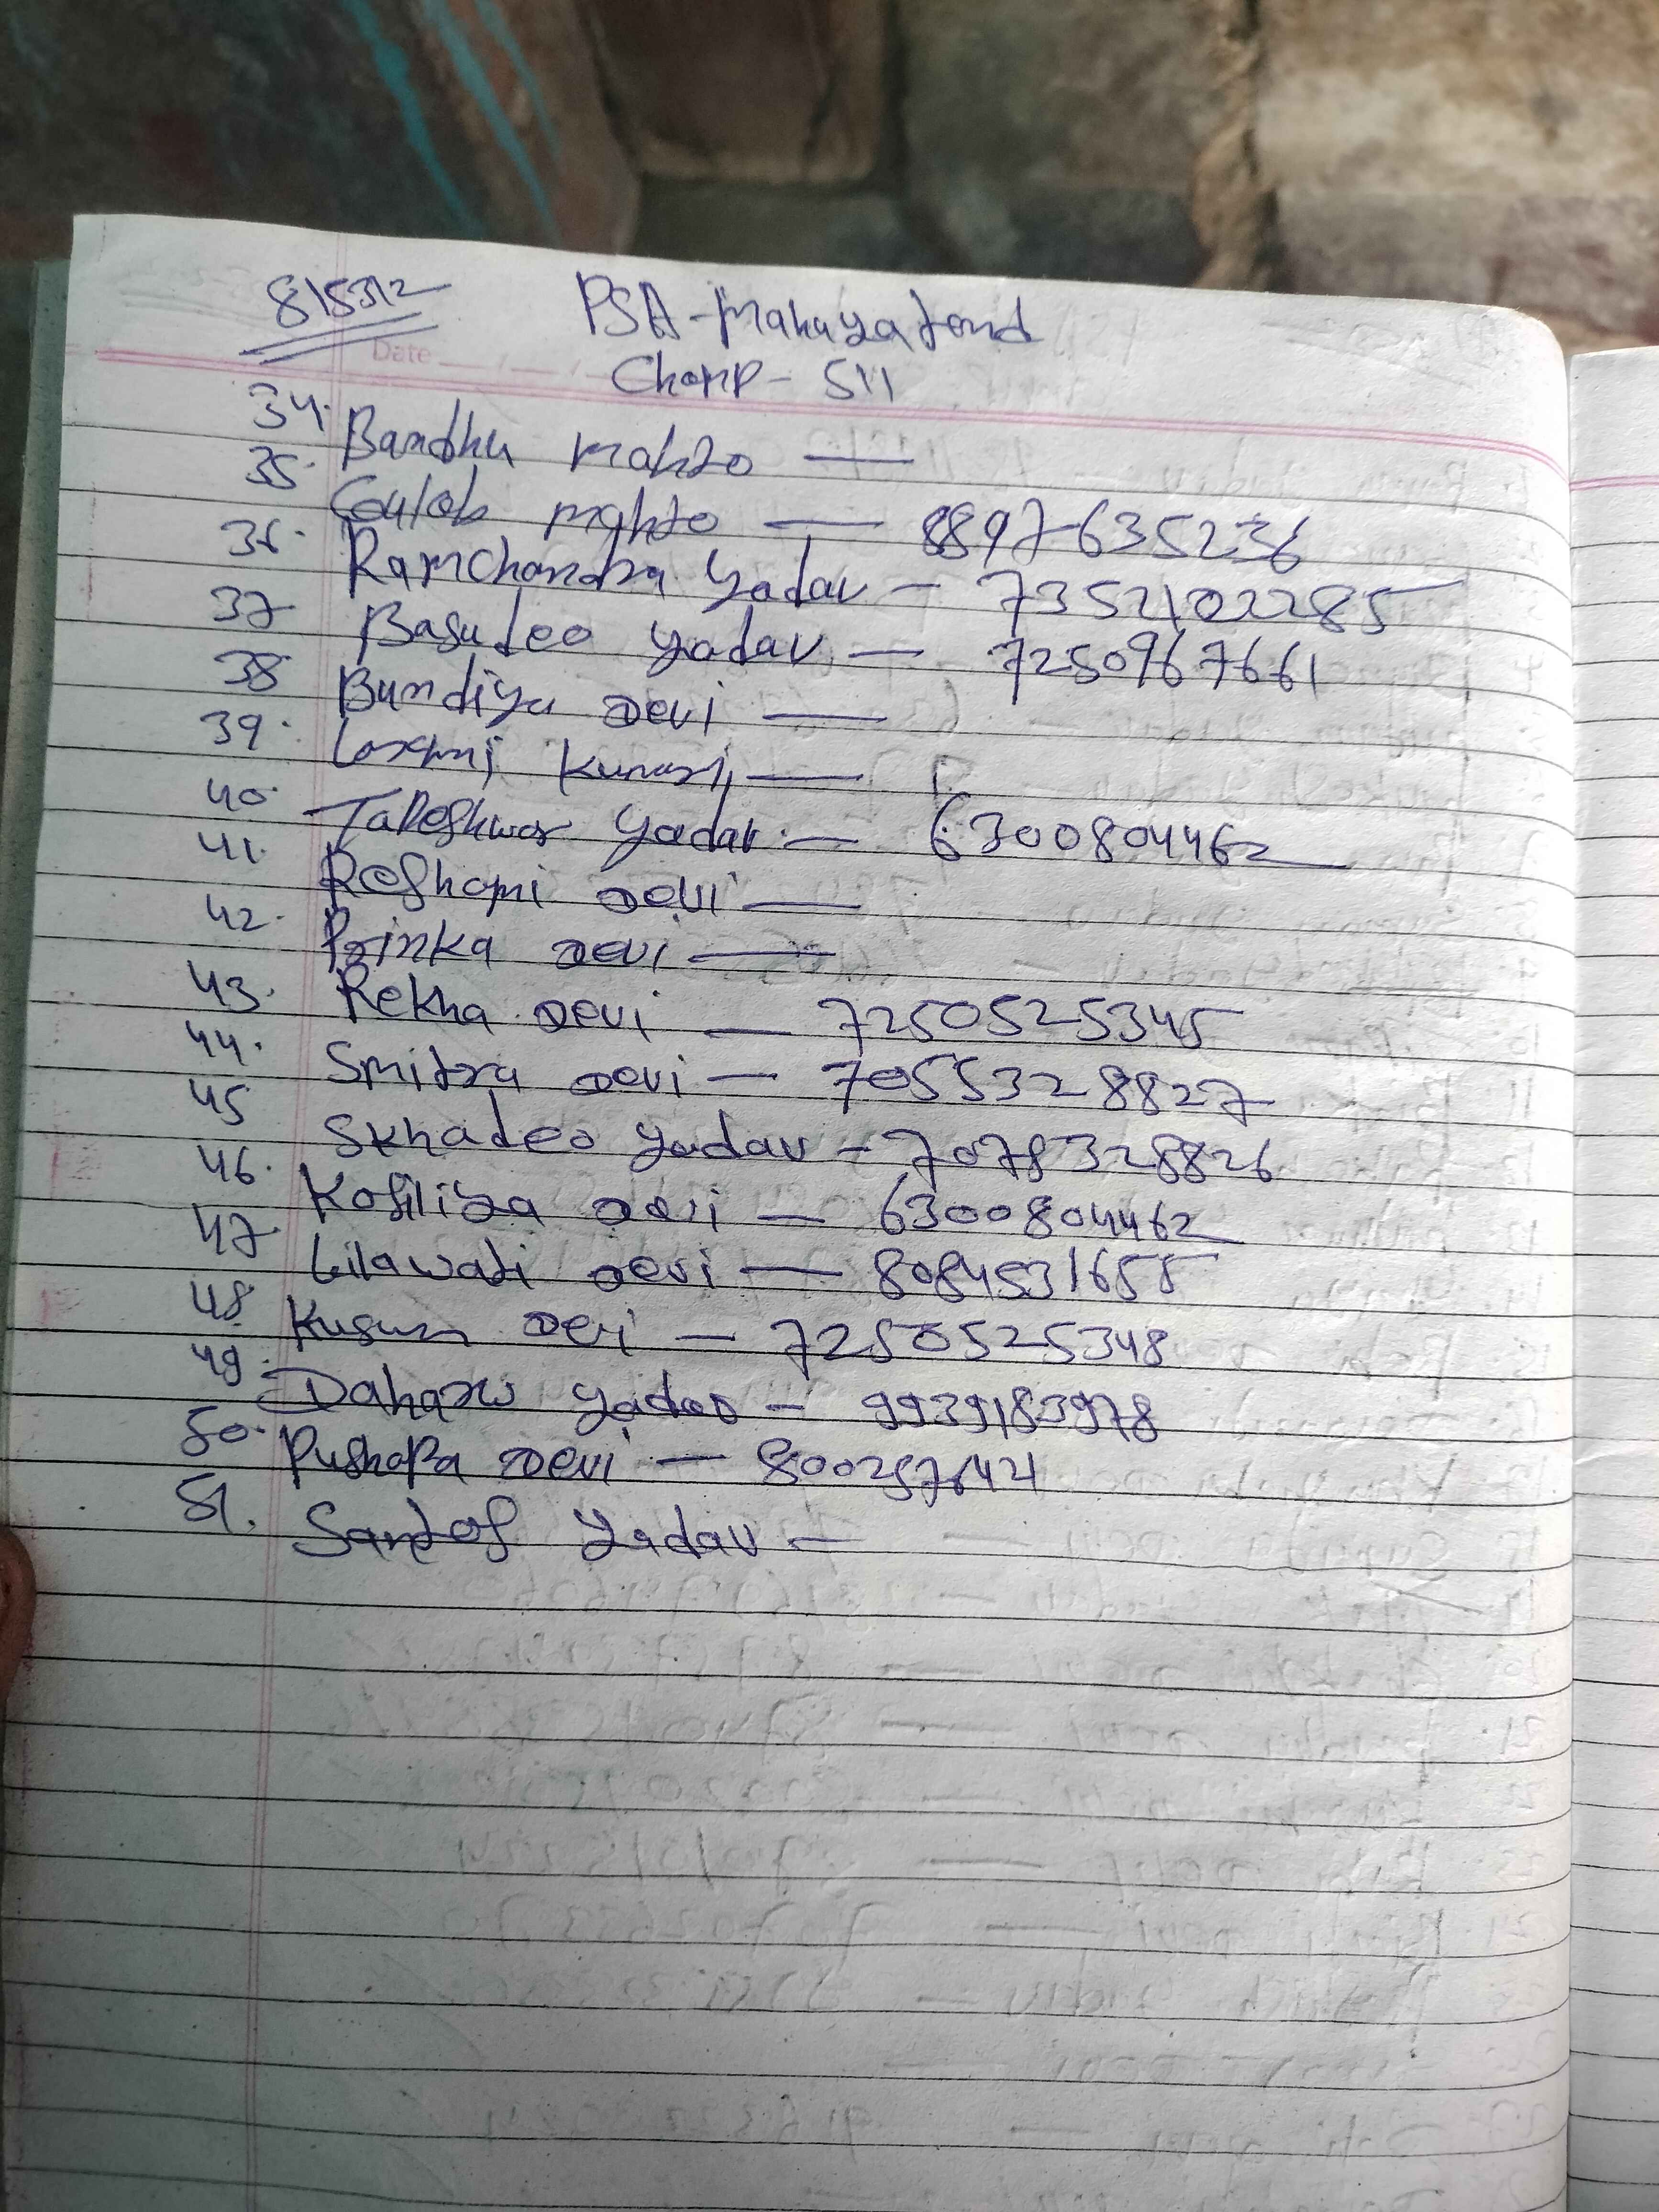 815312
PSA - Mahuyatand
Champ - 511
34. Bandhu mahto —
35. Gulab mahto — 8897635236
36. Ramchandra Yadav — 7352102285
37 Basudeo Yadav — 7250967661
38 Bundiya Devi —
39. Laxmi Kumari —
40. Tapeshwar Yadav — 6300804462
41. Reshami Devi —
42. Prinka Devi —
43. Rekha Devi — 7250525345
44. Smitra Devi — 7055328827
45 Skhadeo Yadav — 7078328826
46. Kosiliya Devi — 6300804462
47. Lilawati Devi — 8084531655
48. Kusum Devi — 7250525348
49. Daharu Yadav — 9939183978
50. Pushapa Devi — 800257644
51. Santos Yadav —
Date